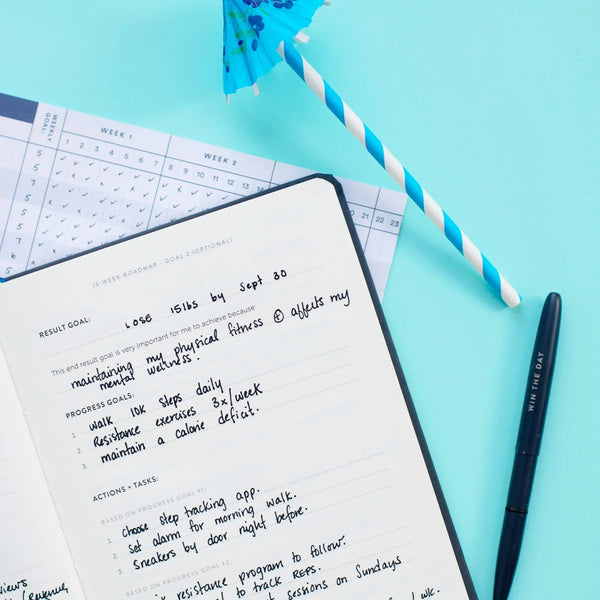 WEEKLY GOAL:
WEEK 1
WEEK 2
1 2 3 4 5 6 7 8 9 10 11 12 13 14
22 23
5
5
7
5
5
5
7
13-WEEK ROADMAP - GOAL 2 (OPTIONAL)
RESULT GOAL: LOSE 15lbs by Sept 30
This end result goal is very important for me to achieve because:
maintaining my physical fitness ⊕ affects my
mental wellness.
PROGRESS GOALS:
1. walk 10K steps daily
2. Resistance exercises 3x/week
3. maintain a calorie deficit.
ACTIONS + TASKS:
BASED ON PROGRESS GOAL #1:
1. choose step tracking app.
2. set alarm for morning walk.
3. sneakers by door night before.
BASED ON PROGRESS GOAL #2:
resistance program to follow.
to track REPS.
sessions on Sundays
/wk.
views
/Revenue,
WIN THE DAY